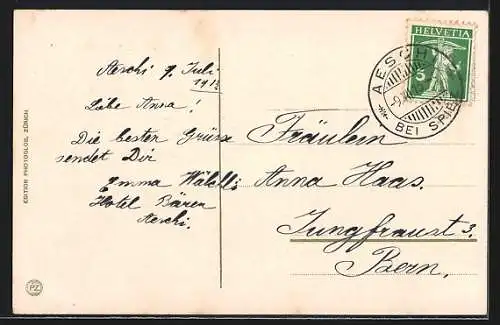 EDITION PHOTOGLOB, ZÜRICH
PZ
Aeschi 9. Juli
1913
Liebe Anna!
Die besten Grüsse
sendet Dir
Emma
Hotel Bären
Aeschi.
HELVETIA
5
AESCHI
BEI SPIEZ
Fräulein
Anna Haas.
Jungfraust 3.
Bern.